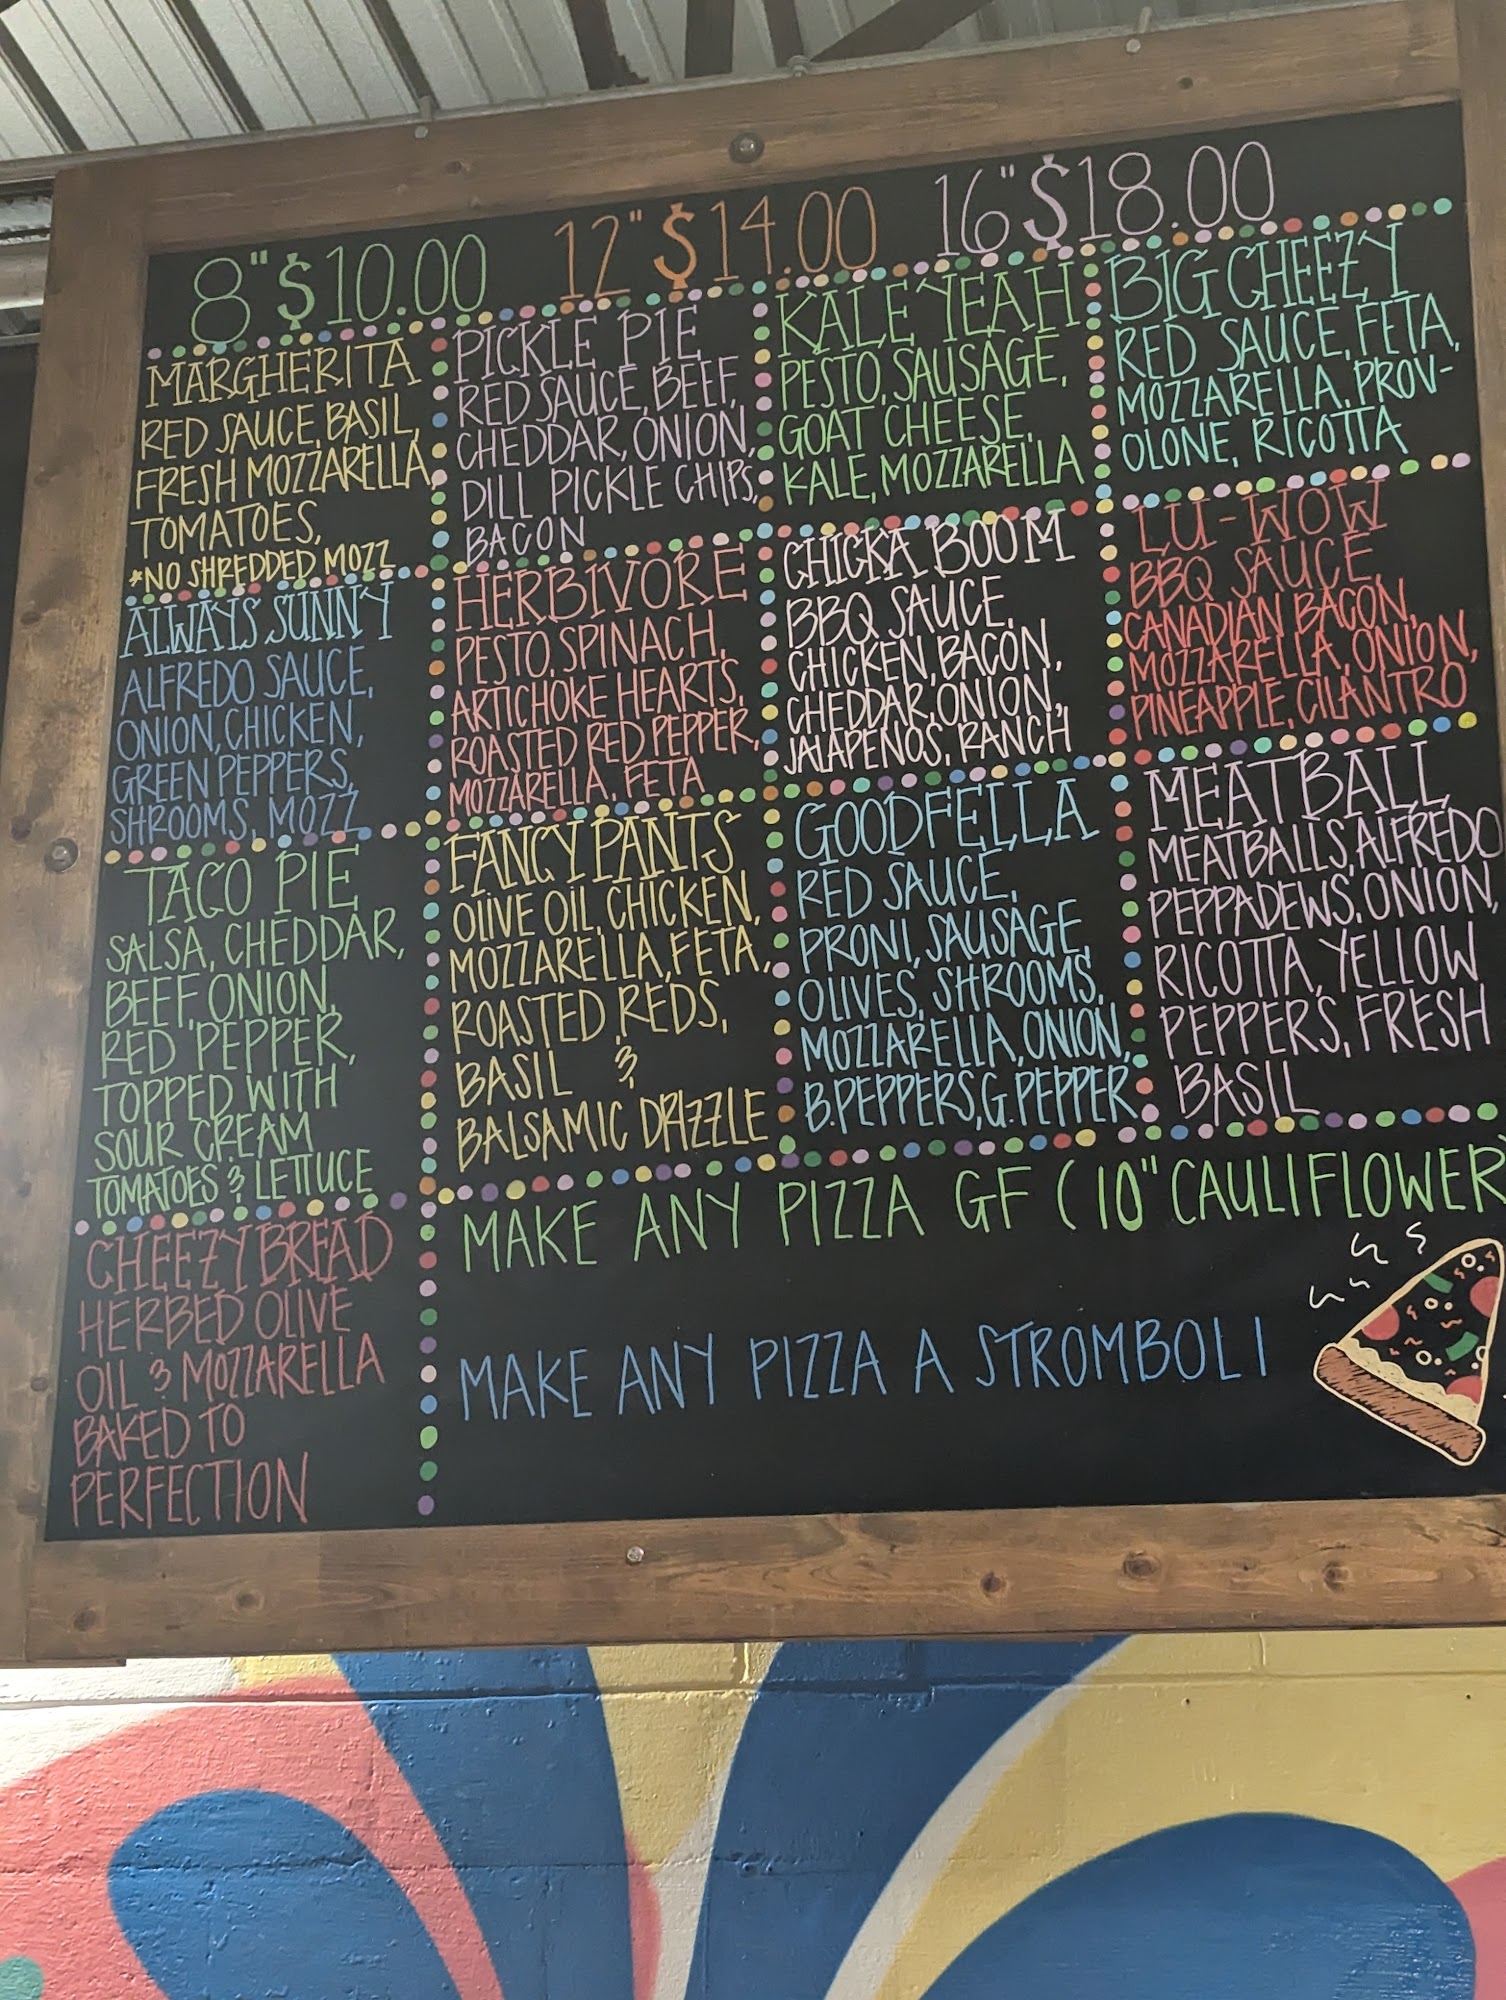 8" $10.00 12" $14.00 16" $18.00
MARGHERITA
RED SAUCE, BASIL,
FRESH MOZZARELLA,
TOMATOES,
*NO SHREDDED MOZZ
PICKLE PIE
RED SAUCE, BEEF,
CHEDDAR, ONION,
DILL PICKLE CHIPS,
BACON
KALE YEAH
PESTO, SAUSAGE,
GOAT CHEESE,
KALE, MOZZARELLA
BIG CHEEZY
RED SAUCE, FETA,
MOZZARELLA, PROV-
OLONE, RICOTTA
ALWAYS SUNNY
ALFREDO SAUCE,
ONION, CHICKEN,
GREEN PEPPERS,
SHROOMS, MOZZ
HERBIVORE
PESTO, SPINACH,
ARTICHOKE HEARTS,
ROASTED RED PEPPER,
MOZZARELLA, FETA
CHICKA BOOM
BBQ SAUCE,
CHICKEN, BACON,
CHEDDAR, ONION,
JALAPENOS, RANCH
LU-WOW
BBQ SAUCE
CANADIAN BACON,
MOZZARELLA, ONION,
PINEAPPLE, CILANTRO
TACO PIE
SALSA, CHEDDAR,
BEEF, ONION,
RED PEPPER,
TOPPED WITH
SOUR CREAM
TOMATOES & LETTUCE
FANCY PANTS
OLIVE OIL, CHICKEN,
MOZZARELLA, FETA,
ROASTED REDS,
BASIL &
BALSAMIC DRIZZLE
GOODFELLA
RED SAUCE,
PRONI, SAUSAGE,
OLIVES, SHROOMS,
MOZZARELLA, ONION,
B.PEPPERS, G. PEPPER
MEATBALL
MEATBALLS, ALFREDO
PEPPADEWS, ONION,
RICOTTA, YELLOW
PEPPERS, FRESH
BASIL
CHEEZY BREAD
HERBED OLIVE
OIL & MOZZARELLA
BAKED TO
PERFECTION
MAKE ANY PIZZA GF (10" CAULIFLOWER
MAKE ANY PIZZA A STROMBOLI